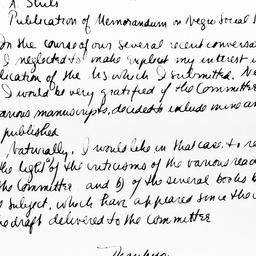 A. Shils
Publication of Memorandum on Negro Social
In the course of our several recent conversa
I neglected to make explicit my interest i
lication of the MS which I submitted. Ne
I would be very gratified if the Committee
various manuscripts, decided to include mine am
published
Naturally, I would like in that case to re
the light of the criticisms of the various read
the Committee and b) of the several books
s subject, which have appeared since the
no draft delivered to the Committee